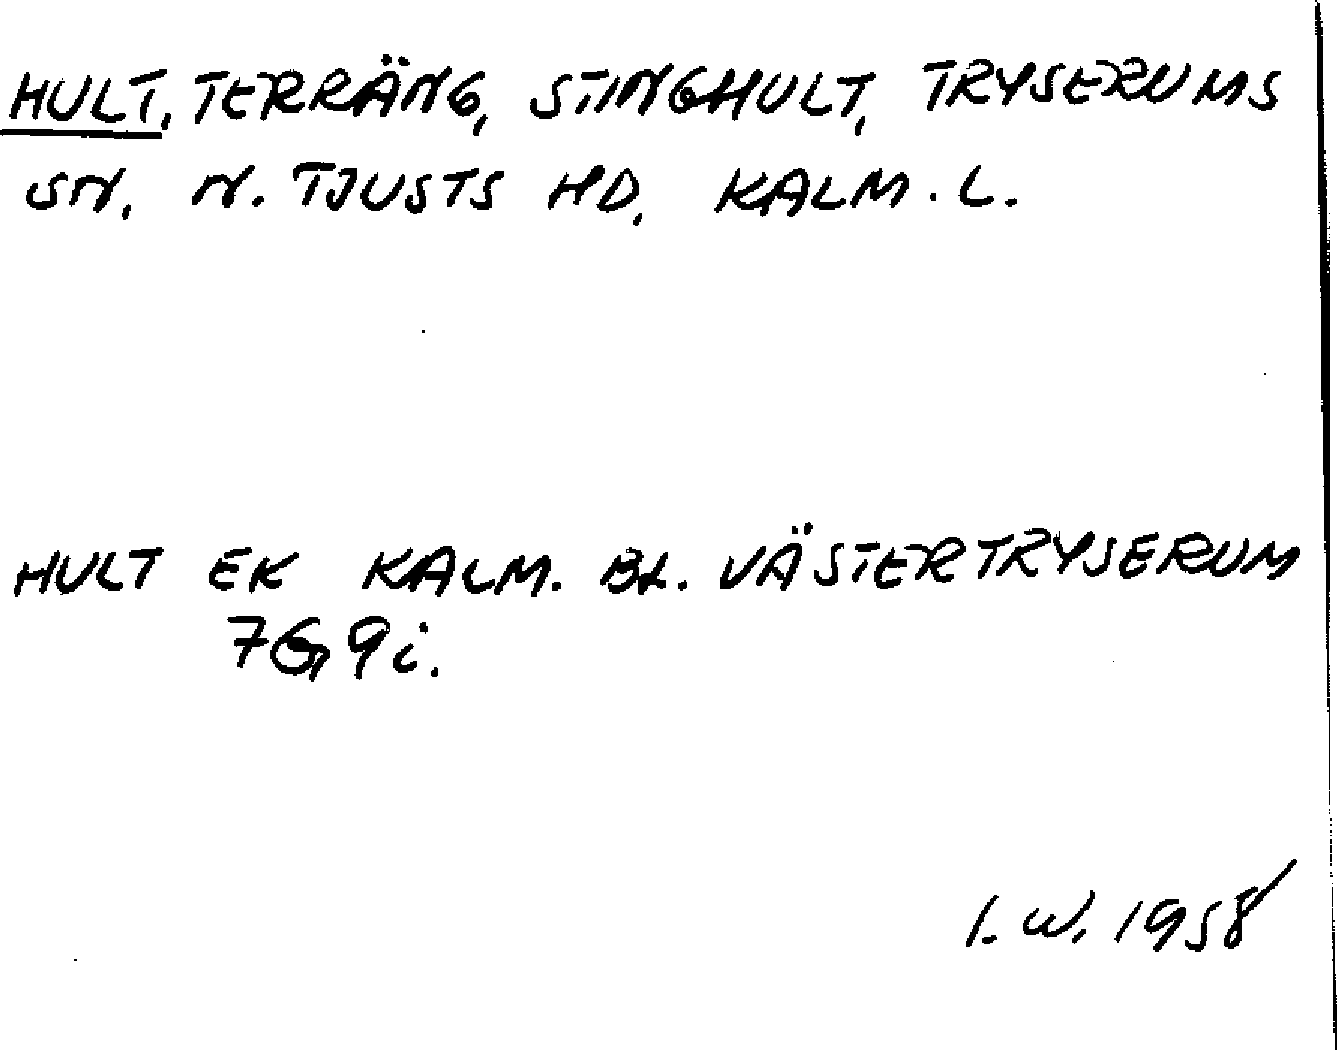 HULT, TERRÄNG, STINGHULT, TRYSERUMS
SN. N. TJUSTS HD. KALM. L.
HULT EK KALM. BL. VÄSTERTRYSERUM
7G9i.
I. W. 1958